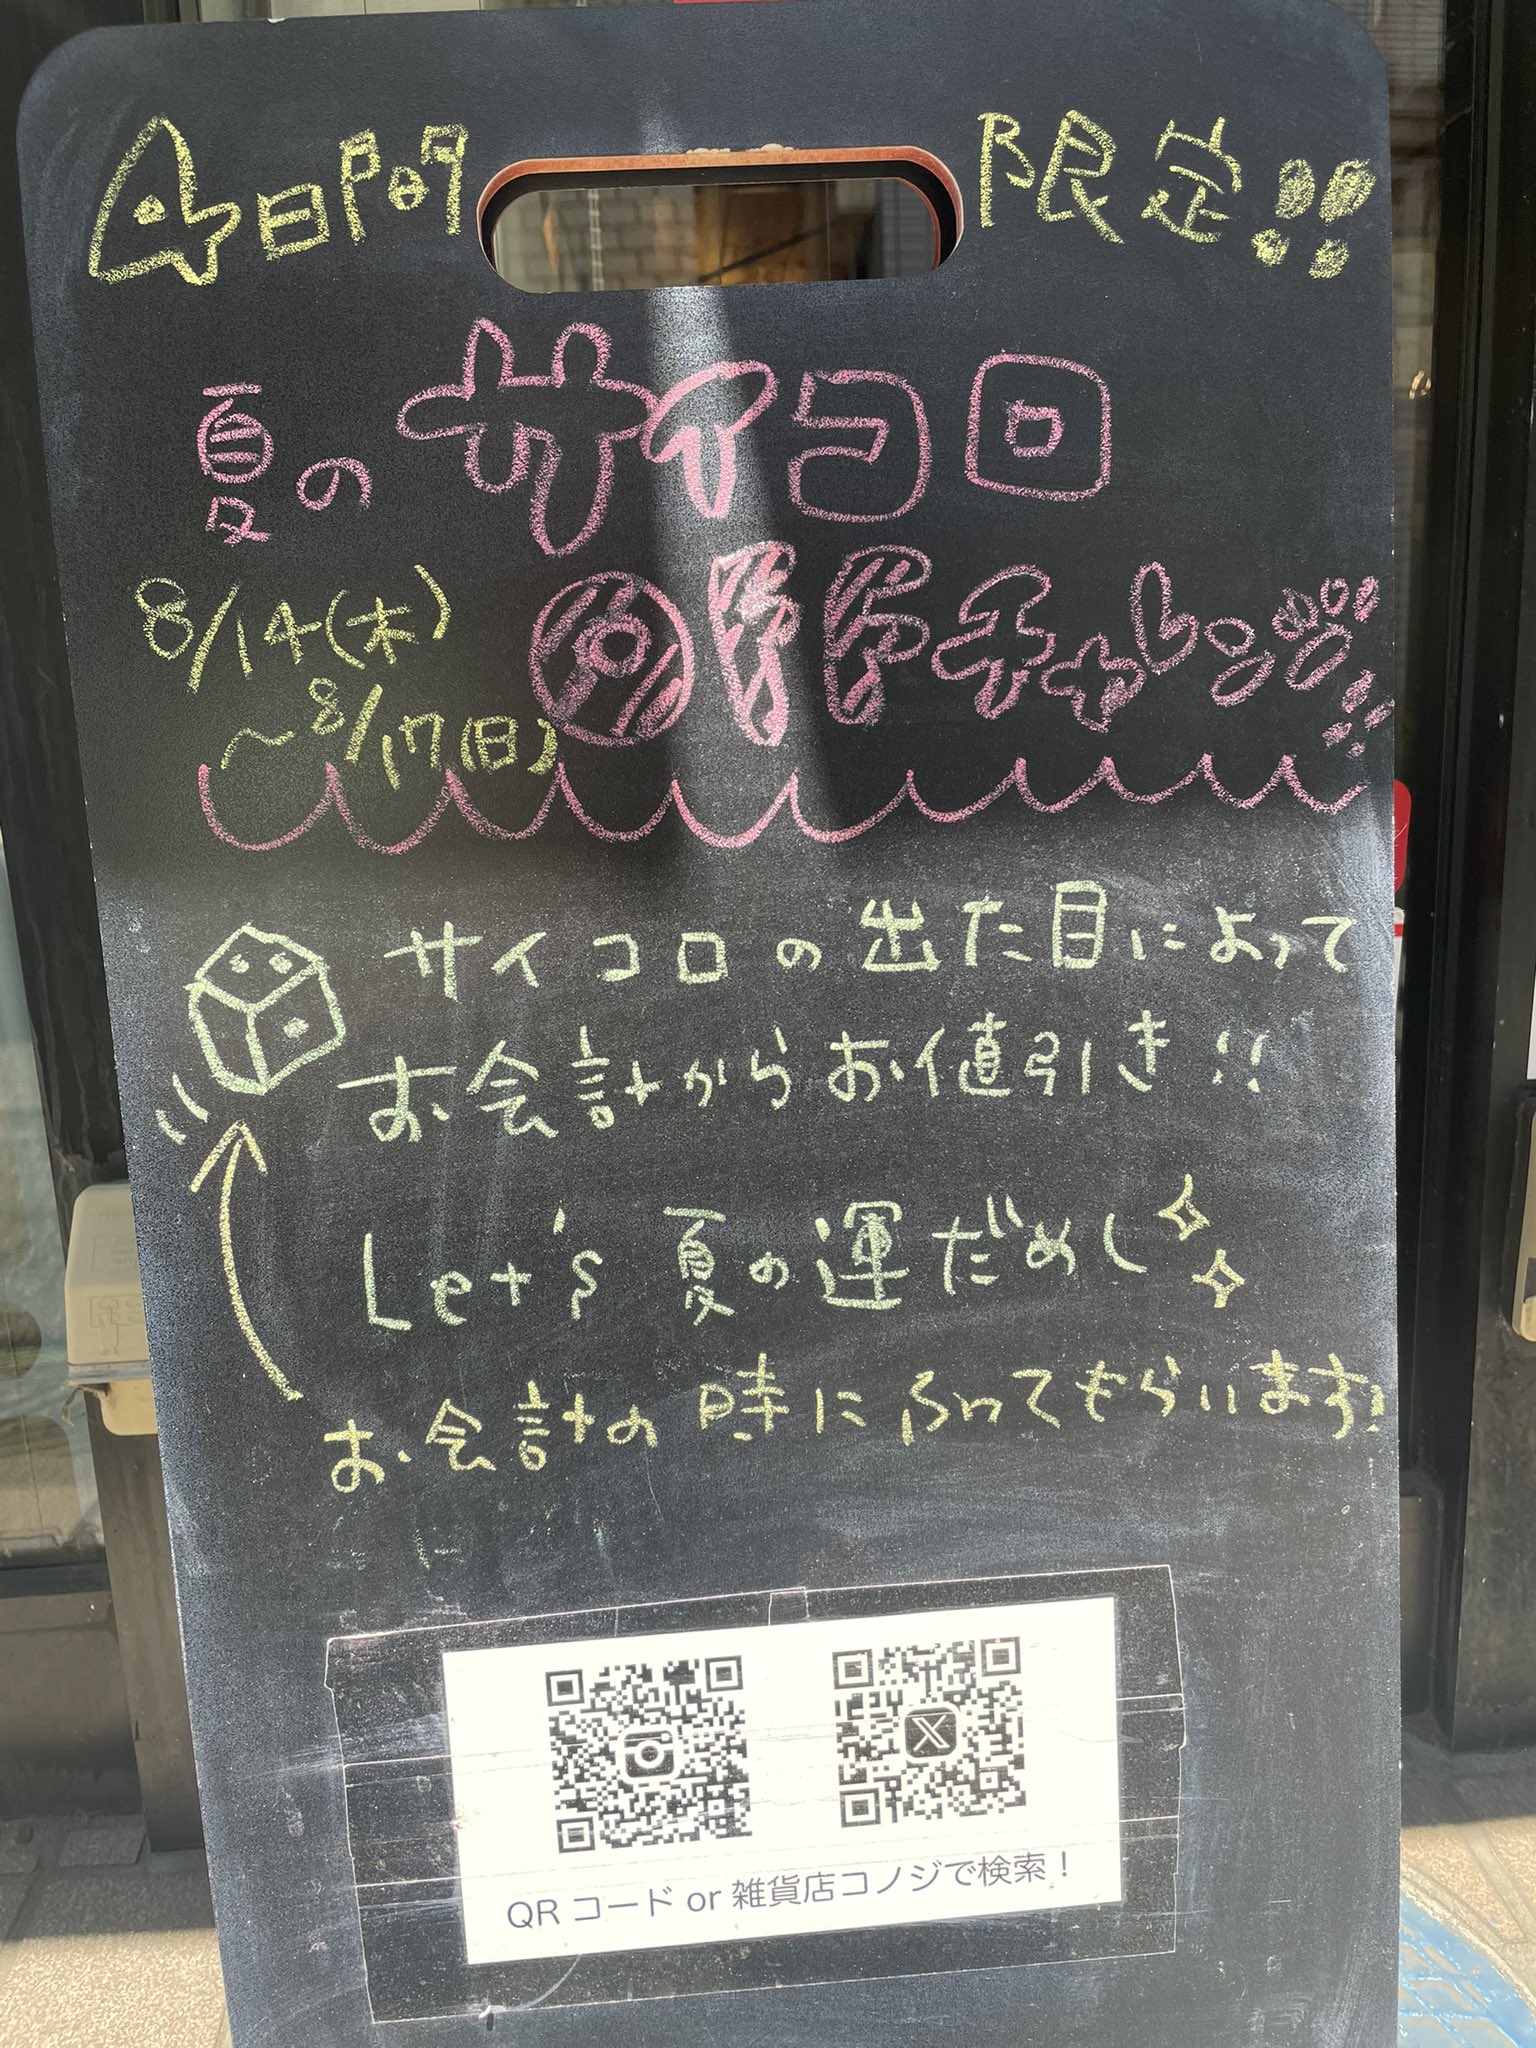 4日間 限定!!
夏のサイコロ
8/14(木)
チャレンジ!!
~8/17(日)
サイコロの出た目によって
お会計からお値引き!!
Let's 夏の運だめし
お会計の時にふってもらいます!
QRコード or 雑貨店コノジで検索!